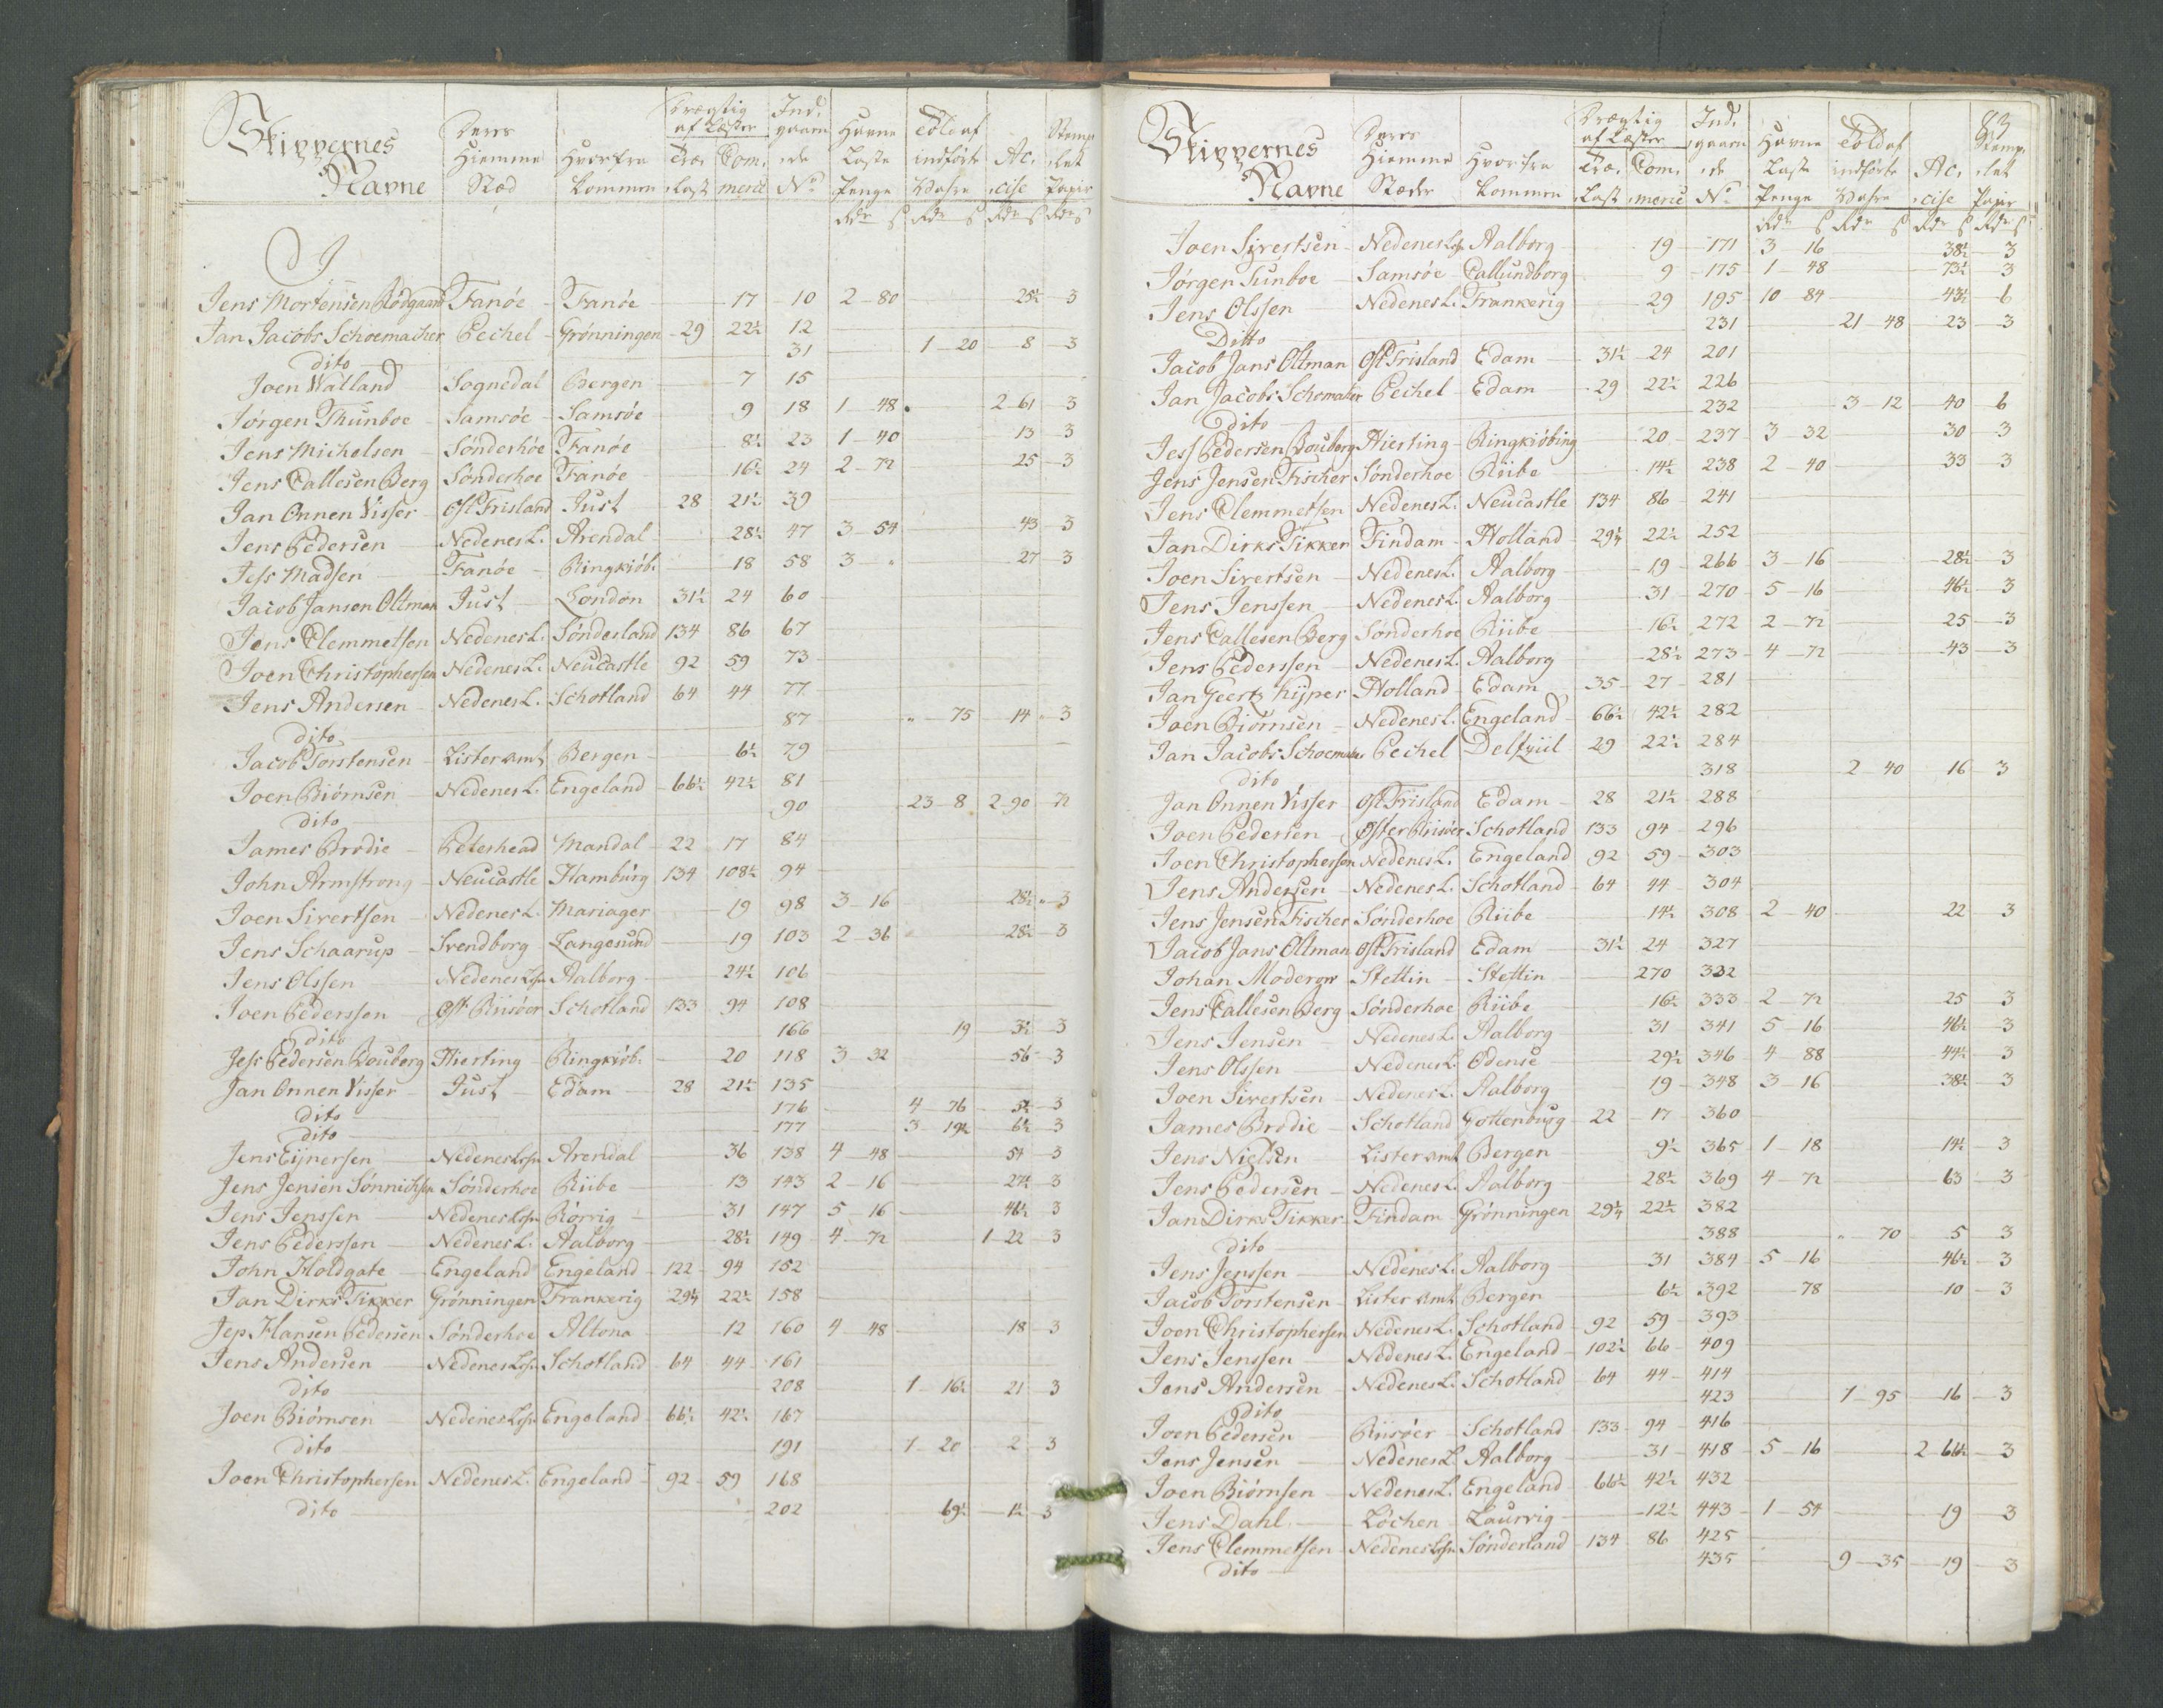 Skippernes Navne | Deres Hiemme Stæd | Hvorfra kommen | Drægtig af Læster Træ. Last | Com. merce | Ind. gaaen de No | Havne Laste Penge Rdr ß | Told af indførte Vahre Rdr ß | Ac. cise Rdr ß | Stemp. let Papir Rdr ß
J
Jens Mortensen Rödgaard Fanöe - Fanöe 17 10 2-80 25½ 3
Jan Jacobs Schoemacher Pechel - Grønningen - 29 22½ 12
dito 31 1-20 8 3
Joen Watland Sognedal Bergen 7 15
Jørgen Thunboe Samsöe Samsöe 9 18 1-48 2-61 3
Jens Michelsen Sönderhöe Fanöe 8½ 23 1-40 13 3
Jens Callesen Berg Sönderhoe Fanöe 16½ 24 2-72 25 3
Jan Onnen Visser Ost Frisland Just 28 21½ 39
Jens Pedersen Nedenes L. Arendal 28½ 47 3-54 43 3
Jess Madsen Fanöe Ringkiöb. 18 58 3-" 27 3
Jacob Jansen Oltman Just London 31½ 24 60
Jens Clemmetsen Nedenes L. Sönderland 134 86 67
Joen Christophersen Nedenes L. Neucastle 92 59 73
Jens Andersen Nedenes L. Schotland 64 44 77
dito 87 "-75 14 3
Jacob Torstensen Lister Amt Bergen 6½ 79
Joen Biörnsen Nedenes L. Engeland 66½ 42½ 81
dito 90 23-8 2-90 72
James Brodie Peterhead Mandal 22 17 84
John Armstrong Neucastle Hamburg 134 108½ 94
Joen Sivertsen Nedenes L. Mariager 19 98 3-16 28½ 3
Jens Schaarup Svendborg Langesund 19 103 2-36 28½ 3
Jens Olssen Nedenes Lehn Aalborg 24½ 106
Joen Pederssen Øst Riisöer Schotland 133 94 108
dito 166 19 3½ 3
Jess Pedersen Bouberg Hierting Ringkiöb. 20 118 3-32 56 3
Jan Onnen Visser Just Edam 28 21½ 135
dito 176 4-76 5½ 3
dito 177 3-19½ 6½ 3
Jens Eijnersen Nedenes Lehn Arendal 36 138 4-48 54 3
Jens Jensen Sönnichsen Sönderhoe Riibe 13 143 2-16 27½ 3
Jens Jenssen Nedenes Lehn Rörvig 31 147 5-16 46½ 3
Jens Pederssen Nedenes L. Aalborg 28½ 149 4-72 1-22 3
John Holdgate Engeland Engeland 122 94 152
Jan Dirks Tikker Grønningen Frankerig 29¼ 22½ 158
Jep Hansen Pedersen Sönderhoe Altona 12 160 4-48 18 3
Jens Andersen Nedenes Lehn Schotland 64 44 161
dito 208 1-16½ 21 3
Joen Biörnsen Nedenes Lehn Engeland 66½ 42½ 167
dito 191 1-20 2 3
Joen Christophersen Nedenes L. Engeland 92 59 168
dito 202 69½ 1½ 3
83
Skippernes Navne | Deres Hiemme Stæder | Hvorfra kommen | Drægtig af Læster Træ. Last | Com. merce | Ind. gaaen de No | Havne Laste Penge Rdr ß | Told af indførte Vahre Rdr ß | Ac. cise Rdr ß | Stemp. let Papir Rdr ß
Joen Sivertsen Nedenes Lehn Aalborg 19 171 3 16 38½ 3
Jørgen Tunboe Samsöe Callundborg 9 175 1-48 73½ 3
Jens Olssen Nedenes L. Frankerig 29 195 10 84 43½ 6
Ditto 231 21-48 23 3
Jacob Jans Oltman Ost Frisland Edam 31½ 24 201
Jan Jacobs Schomaker Pechel Edam 29 22½ 226
Dito 232 3-12 40 6
Jess Pedersen Bouberg Hierting Ringkiöbing 20 237 3-32 30 3
Jens Jensen Fischer Sönderhoe Riibe 14½ 238 2-40 33 3
Jens Clemmetsen Nedenes L. Neucastle 134 86 241
Jan Dirks Tikker Findam Holland 29¼ 22½ 252
Joen Sivertsen Nedenes L. Aalborg 19 266 3-16 28½ 3
Jens Jenssen Nedenes L. Aalborg 31 270 5-16 46½ 3
Jens Callesen Berg Sönderhoe Riibe 16½ 272 2-72 25 3
Jens Pederssen Nedenes L. Aalborg 28½ 273 4-72 43 3
Jan Geertz Kijper Holland Edam 35 27 281
Joen Biörnsen Nedenes L. Engeland 66½ 42½ 282
Jan Jacobs Schoemaker Pechel Delfziil 29 22½ 284
dito 318 2-40 16 3
Jan Onnen Visser Ost Frisland Edam 28 21½ 288
Joen Pedersen Øster Riisöer Schotland 133 94 296
Joen Christophersen Nedenes L. Engeland 92 59 303
Jens Andersen Nedenes L. Schotland 64 44 304
Jens Jensen Fischer Sönderhoe Riibe 14½ 308 2-40 22 3
Jacob Jans Oltman Ost Frisland Edam 31½ 24 327
Johan Moderow Stettin Stettin 270 332
Jens Callesen Berg Sönderhoe Riibe 16½ 333 2-72 25 3
Jens Jensen Nedenes L. Aalborg 31 341 5-16 46½ 3
Jens Olssen Nedenes L. Odense 29½ 346 4-88 44½ 3
Joen Sivertsen Nedenes L. Aalborg 19 348 3-16 38½ 3
James Brodie Schotland Gottenburg 22 17 360
Jens Nielsen Lister Amt Bergen 9½ 365 1-18 14½ 3
Jens Pedersen Nedenes L. Aalborg 28½ 369 4-72 63 3
Jan Dirks Tikker Findam Grønningen 29¼ 22½ 382
dito 388 " 70 5 3
Jens Jenssen Nedenes L. Aalborg 31 384 5-16 46½ 3
Jacob Torstensen Lister Amt Bergen 6½ 392 78 10 3
Joen Christophersen Nedenes L. Schotland 92 59 393
Jens Jenssen Nedenes L. Engeland 102½ 66 409
Jens Andersen Nedenes L. Schotland 64 44 414
dito 423 1-95 16 3
Joen Pedersen Riisöer Schotland 133 94 416
Jens Jensen Nedenes L. Aalborg 31 418 5-16 2-66½ 3
Joen Biörnsen Nedenes L. Engeland 66½ 42½ 432
Jens Dahl Löchen Laurvig 12½ 443 1-54 19 3
Jens Clemmetsen Nedenes Lehn Sönderland 134 86 425
dito 435 9-35 19 3